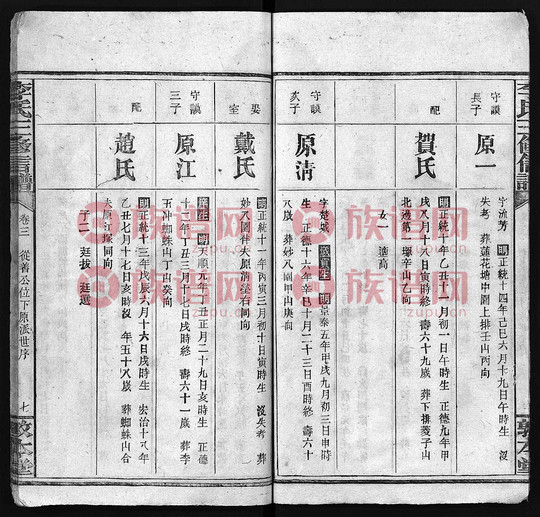 守謨
長子
原一
字流芳 明正統十四年己巳六月十九日午時生 沒
失考 葬蓮花塘中園上排壬山丙向
配
賀氏
明正統十年乙丑十一月初一日午時生 正德九年甲
戌八月十八日寅時終 壽六十九歲 葬下排菱子山
北邊第 辛山乙向
女一 適高
守謨
次子
原清
字楚城 明景泰五年甲戌九月初三日申時
生 正德十六年辛巳十月二十三日酉時終 壽六十
八歲 葬妙八園甲山庚向
娶
室
戴氏
明正統十一年丙寅三月初十日寅時生 沒失考 葬
妙八園伴夫原清墓右同向
守謨
三子
原江
生 明天順元年丁丑正月二十九日亥時生 正德
十二年丁丑三月十七日戌時終 壽六十一歲 葬李
五冲蜘蛛山丁癸向
配
趙氏
明正統十三年戊辰六月十六日戌時生 宏治十八年
乙丑七月十七日亥時沒 年五十八歲 葬蜘蛛山合
夫原江塚同向
子二 廷拔 廷選
李氏三修信譜
卷三
從善公位下原派世序
七
敦本堂
族谱网
zupu.cn